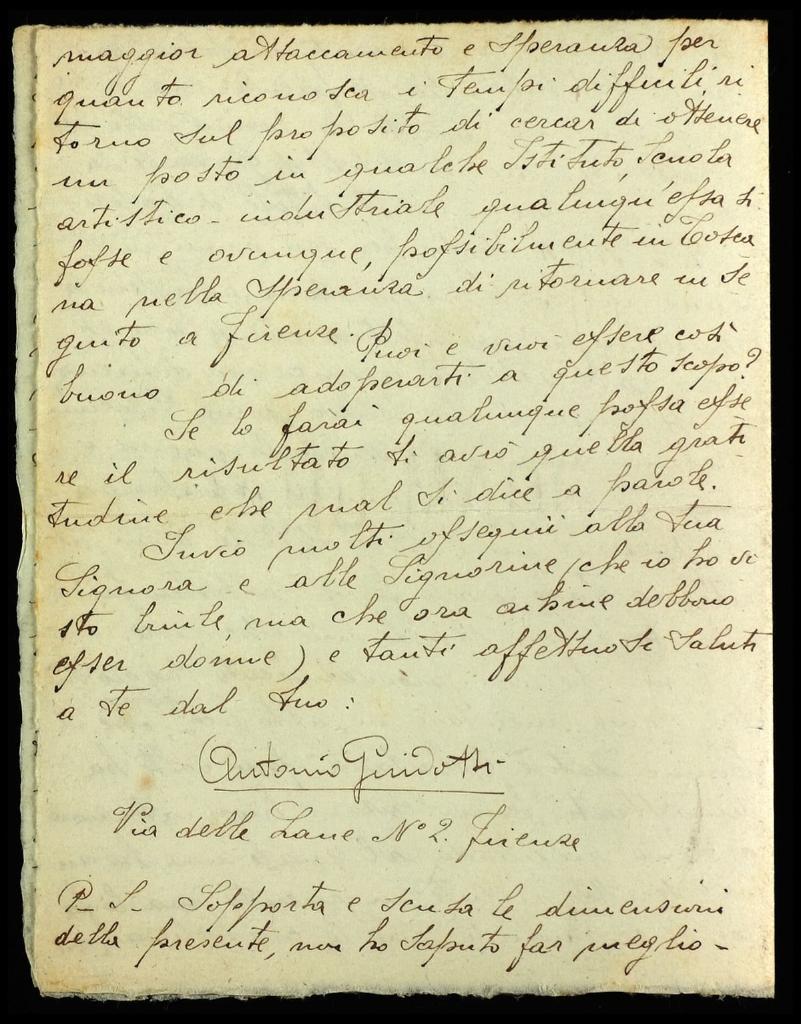 maggior attaccamento e speranza per
quanto riconosca i tempi difficili, ri
torno sul proposito di cercar di ottenere
un posto in qualche Istituto, Scuola
artistico-industriale qualunqu'essa si
fosse e ovunque, possibilmente in Tosca
na nella speranza di ritornare in se
guito a Firenze. Puoi e vuoi essere così
buono di adoperarti a questo scopo?
Se lo farai qualunque possa esse
re il risultato ti avrò quella grati
tudine che mal si dice a parole.
Invio molti ossequii alla tua
Signora e alle Signorine (che io ho vi
sto bimbe, ma che ora ahimè debbono
esser donne) e tanti affettuosi saluti
a te dal tuo:
Antonio Guidotti
Via delle Lane N° 2. Firenze
P_ S_ Sopporta e scusa le dimensioni
della presente, non ho saputo far meglio_